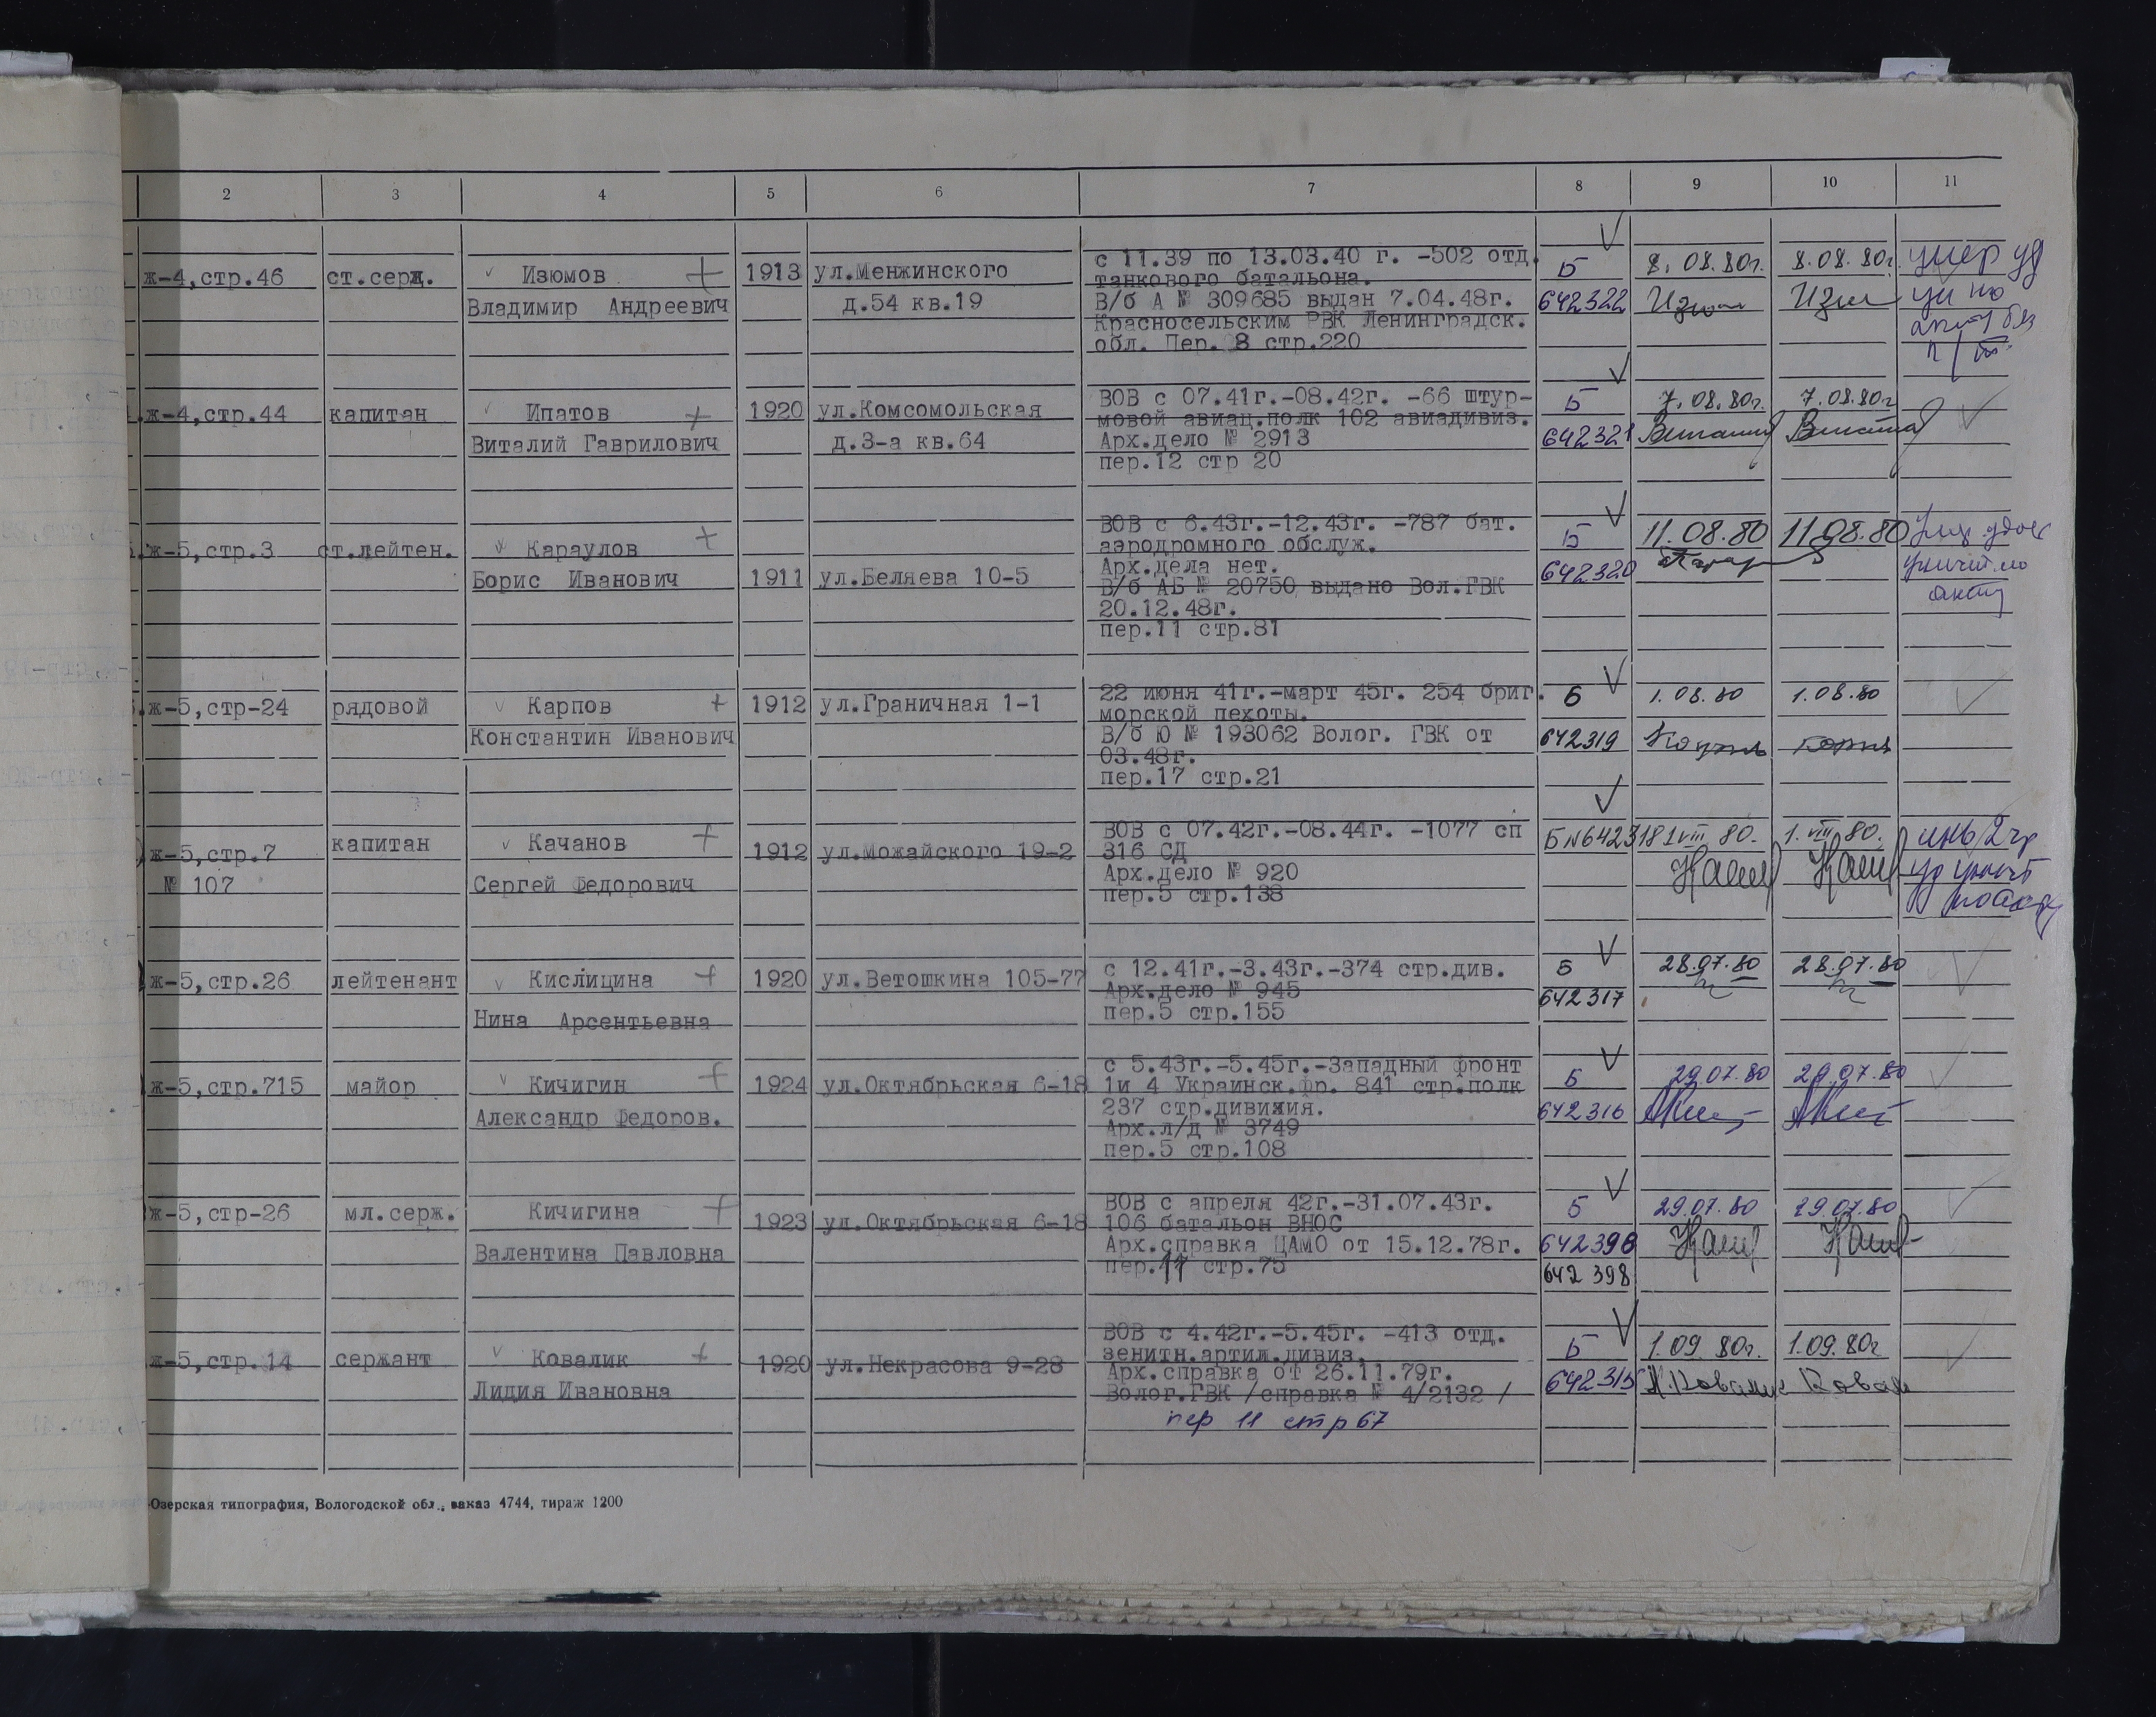 2 3 4 5 6 7 8 9 10 11
ж-4,стр.46 ст.серж. Изюмов 1913 ул.Менжинского с 11.39 по 13.03.40 г. -502 отд. Б 8.08.80г. 8.08.80г. умер уд
Владимир Андреевич д.54 кв.19 танкового батальона.
В/б А № 309685 выдан 7.04.48г. 642322
Красносельским РВК Ленинградск.
обл. Пер. 8 стр.220
ж-4,стр.44 капитан Ипатов 1920 ул.Комсомольская ВОВ с 07.41г.-08.42г. -66 штур- Б 7.08.80г. 7.08.80г
Виталий Гаврилович д.3-а кв.64 мовой авиац.полк 102 авиадивиз.
Арх.дело № 2913 642321
пер.12 стр 20
ж-5,стр.3 ст.лейтен. Караулов ВОВ с 6.43г.-12.43г. -787 бат. Б 11.08.80 11.08.80
Борис Иванович 1911 ул.Беляева 10-5 аэродромного обслуж.
Арх.дела нет. 642320
В/б АБ № 20750 выдано Вол.ГВК
20.12.48г.
пер.11 стр.81
акту
ж-5,стр-24 рядовой Карпов 1912 ул.Граничная 1-1 22 июня 41г.-март 45г. 254 бриг. Б 1.08.80 1.08.80
Константин Иванович морской пехоты.
В/б Ю № 193062 Волог. ГВК от 642319
03.48г.
пер.17 стр.21
ж-5,стр.7 капитан Качанов 1912 ул.Можайского 19-2 ВОВ с 07.42г.-08.44г. -1077 сп Б№642318 1.VIII.80. 1.VIII.80.
№ 107 Сергей Федорович 316 СД
Арх.дело № 920
пер.5 стр.138
ж-5,стр.26 лейтенант Кислицина 1920 ул.Ветошкина 105-77 с 12.41г.-3.43г.-374 стр.див. Б 28.07.80 28.07.80
Нина Арсентьевна Арх.дело № 945 642317
пер.5 стр.155
ж-5,стр.715 майор Кичигин 1924 ул.Октябрьская 6-18 с 5.43г.-5.45г.-Западный фронт Б 29.07.80 29.07.80
Александр Федоров. 1и 4 Украинск.фр. 841 стр.полк
237 стр.дивизия. 642316
Арх.л/д № 3749
пер.5 стр.108
ж-5,стр-26 мл.серж. Кичигина 1923 ул.Октябрьская 6-18 ВОВ с апреля 42г.-31.07.43г. Б 29.07.80 29.07.80
Валентина Павловна 106 батальон ВНОС
Арх.справка ЦАМО от 15.12.78г. 642398
пер.11 стр.75 642 398
ж-5,стр.14 сержант Ковалик 1920 ул.Некрасова 9-28 ВОВ с 4.42г.-5.45г. -413 отд. Б 1.09.80г. 1.09.80г
Лидия Ивановна зенитн.артил.дивиз.
Арх.справка от 26.11.79г. 642315
Волог.ГВК /справка № 4/2132 /
пер 11 стр 67
Озерская типография, Вологодской обл., заказ 4744, тираж 1200